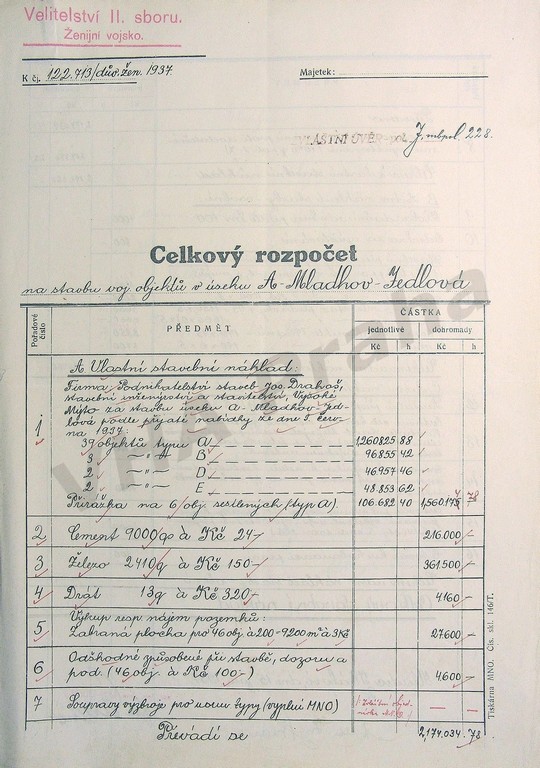 Velitelství II. sboru.
Ženijní vojsko.
K čj. 122.713/dův. žen. 1937.
Majetek:
VLASTNÍ ÚVĚR pol. 228.
Celkový rozpočet
na stavbu voj. objektů v úseku A-Mladkov-Jedlová
Pořadové číslo
PŘEDMĚT
ČÁSTKA
jednotlivě dohromady
Kč h Kč h
A Vlastní stavební náklad:
Firma, Podnikatelství staveb Jos. Drahoš,
stavební inženýrství a stavitelství, Vysoké
Mýto za stavbu úseku A-Mladkov-Jed-
lová podle přijaté nabídky ze dne 5. červ-
na 1937:
1
39 objektů typu A 1,260825 88
3 -"- B 96855 42
2 -"- D 46957 46
2 -"- E 48.853 62
Přirážka na 6 obj. zesílených (typ A) 106.682 40 1,560.174 78
2 Cement 9000 q a Kč 24.- 216.000 -
3 Železo 2410 q à Kč 150.- 361500 -
4 Drát 13 q à Kč 320.- 4160 -
Výkup resp. nájem pozemků:
5 Zabraná plocha pro 46 obj. à 200 = 9200 m² à 3 Kč 27.600 -
Odškodné způsobené při stavbě, dozoru a
6 pod. (46 obj. à Kč 100.-) 4.600 -
7 Soupravy výzbroje pro usuu typy (vyplní MNO) - -
Převádí se 2,174.034 78
Tiskárna MNO. Čís. skl. 146/T.
VHA Praha